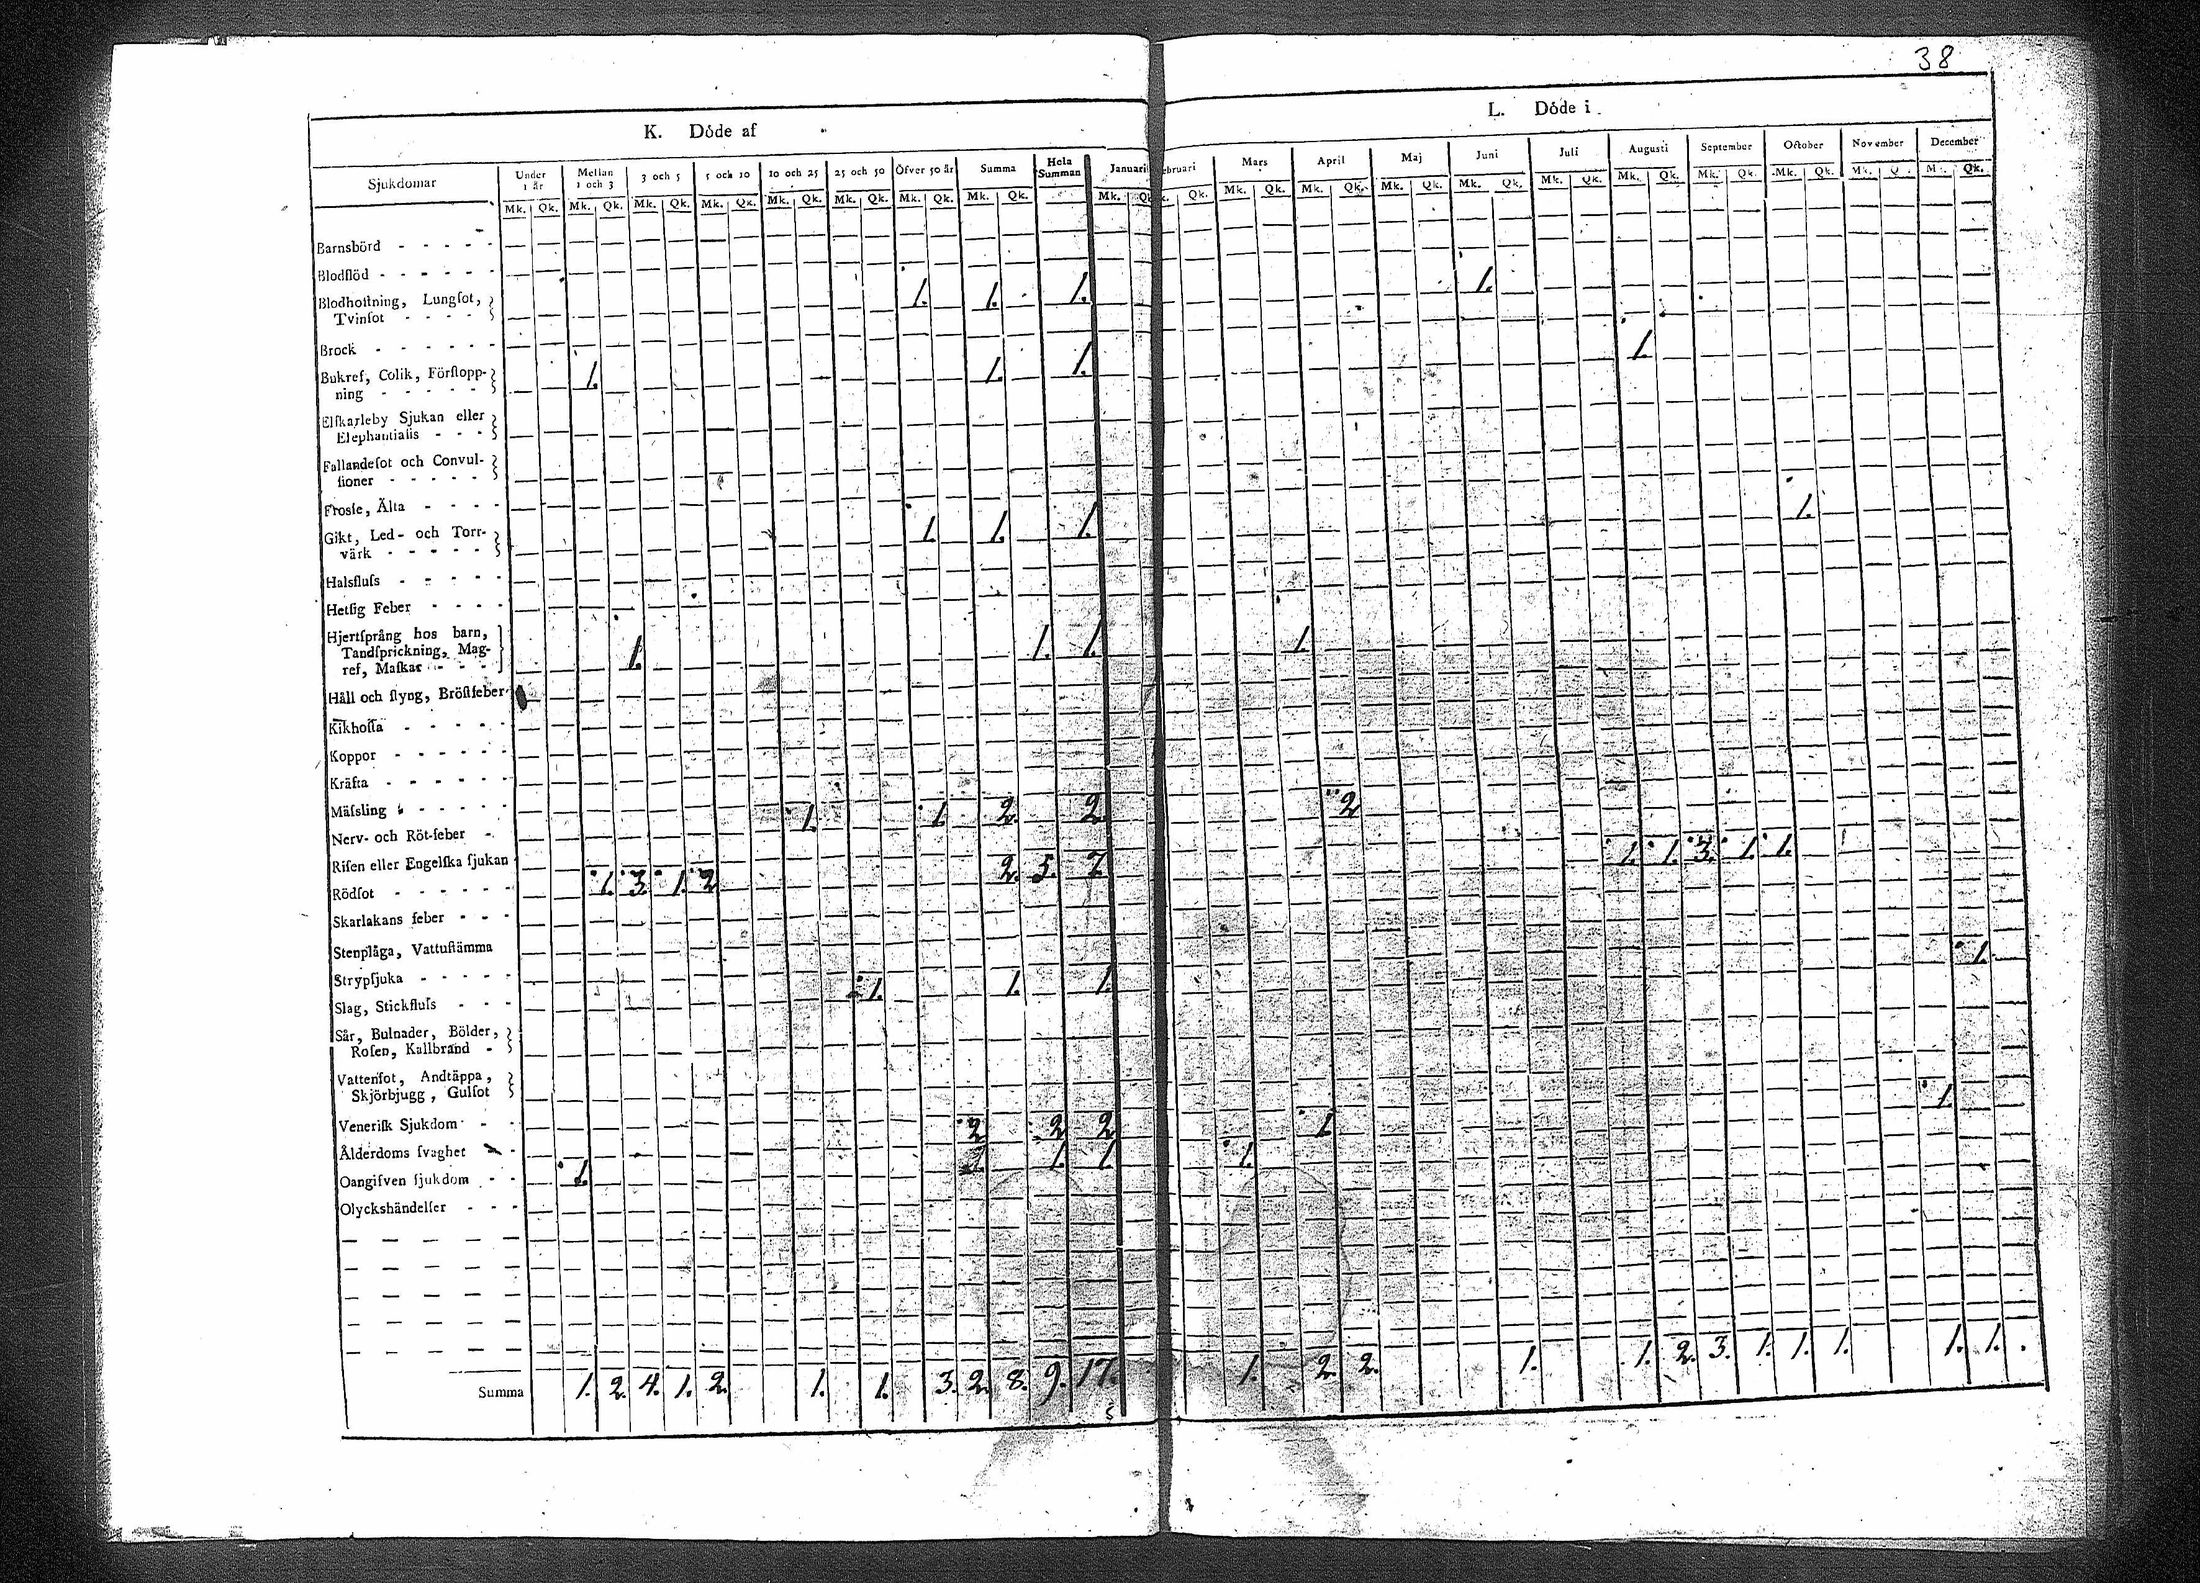 38
K. Döde af
L. Döde i
Sjukdomar Under 1 år Mellan 1 och 3 3 och 5 5 och 10 10 och 25 25 och 50 Öfver 50 år Summa Hela Summan Januari Februari Mars April Maj Juni Juli Augusti September October November December
Mk. Qk. Mk. Qk. Mk. Qk. Mk. Qk. Mk. Qk. Mk. Qk. Mk. Qk. Mk. Qk. Mk. Qk. Qk. Mk. Qk. Mk. Qk. Mk. Qk. Mk. Qk. Mk. Qk. Mk. Qk. Mk. Qk. Mk. Qk. Mk. Qk.
Barnsbörd
Blodflöd
Blodhoſtning, Lungſot, 1. 1. 1. 1.
Tvinſot
Brock
Bukref, Colik, Förſtopp- 1. 1. 1. 1.
ning
Elſkarleby Sjukan eller
Elephantiaſis
Fallandeſot och Convul-
ſioner
Froſſe, Älta
Gikt, Led- och Torr- 1. 1. 1. 1.
värk
Halsfluſs
Hetſig Feber
Hjertſprång hos barn, 1. 1. 1. 1.
Tandſprickning, Mag-
ref, Maſkar
Håll och ſtyng, Bröſtfeber
Kikhoſta
Koppor
Kräfta
Mäſsling 1. 1. 2. 2. 2
Nerv- och Röt-feber
Riſen eller Engelſka ſjukan 2. 5. 7 1. 1. 3. 1. 1.
Rödſot 1. 3. 1. 2
Skarlakans feber
Stenplåga, Vattuſtämma
Strypſjuka 1. 1. 1. 1.
Slag, Stickfluſs
Sår, Bulnader, Bölder,
Roſen, Kallbrand
Vattenſot, Andtäppa, 1.
Skjörbjugg, Gulſot
Veneriſk Sjukdom 2 2 2 1
Ålderdoms ſvaghet 1. 1. 1 1.
Oangifven ſjukdom 1.
Olyckshändelſer
Summa 1. 2. 4. 1. 2. 1. 1. 3. 2. 8. 9. 17. 1. 2. 2. 1. 1. 2. 3. 1. 1. 1. 1. 1.